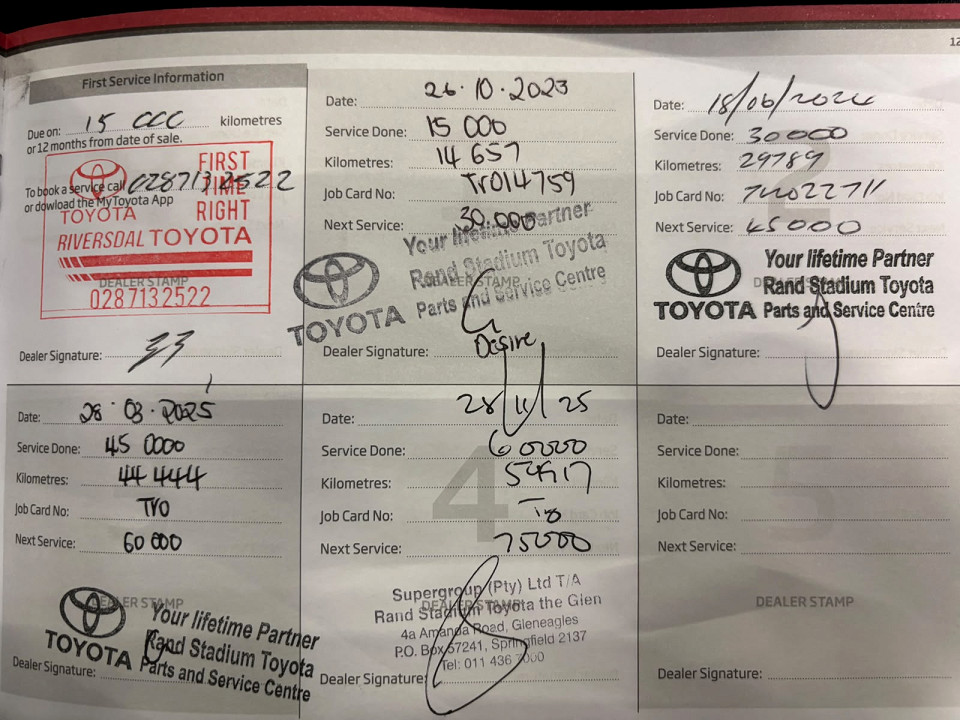 12
First Service Information
Due on: 15 000 kilometres
or 12 months from date of sale.
To book a service call 0287132522
or dowload the MyToyota App
FIRST
TIME
RIGHT
TOYOTA
RIVERSDAL TOYOTA
DEALER STAMP
0287132522
Dealer Signature:
Date: 26.10.2023
Service Done: 15 000
Kilometres: 14 657
Job Card No: Tr014759
Next Service: 30.000
Your lifetime Partner
Rand Stadium Toyota
Parts and Service Centre
TOYOTA
DEALER STAMP
Desire
Dealer Signature:
Date: 18/06/2024
Service Done: 30000
Kilometres: 29789
Job Card No:
Next Service: 45000
Your lifetime Partner
Rand Stadium Toyota
TOYOTA Parts and Service Centre
Dealer Signature:
Date: 28.03.2025
Service Done: 45 0000
Kilometres: 44 444
Job Card No: Tro
Next Service: 60 000
DEALER STAMP
Your lifetime Partner
Rand Stadium Toyota
TOYOTA Parts and Service Centre
Dealer Signature:
4
Date: 28/11/25
Service Done: 60000
Kilometres:
Job Card No:
Next Service: 75000
Supergroup (Pty) Ltd T/A
DEALER STAMP
Rand Stadium Toyota the Glen
4a Amanda Road, Gleneagles
P.O. Box 57241, Springfield 2137
Tel: 011 436 7000
Dealer Signature:
5
Date:
Service Done:
Kilometres:
Job Card No:
Next Service:
DEALER STAMP
Dealer Signature: